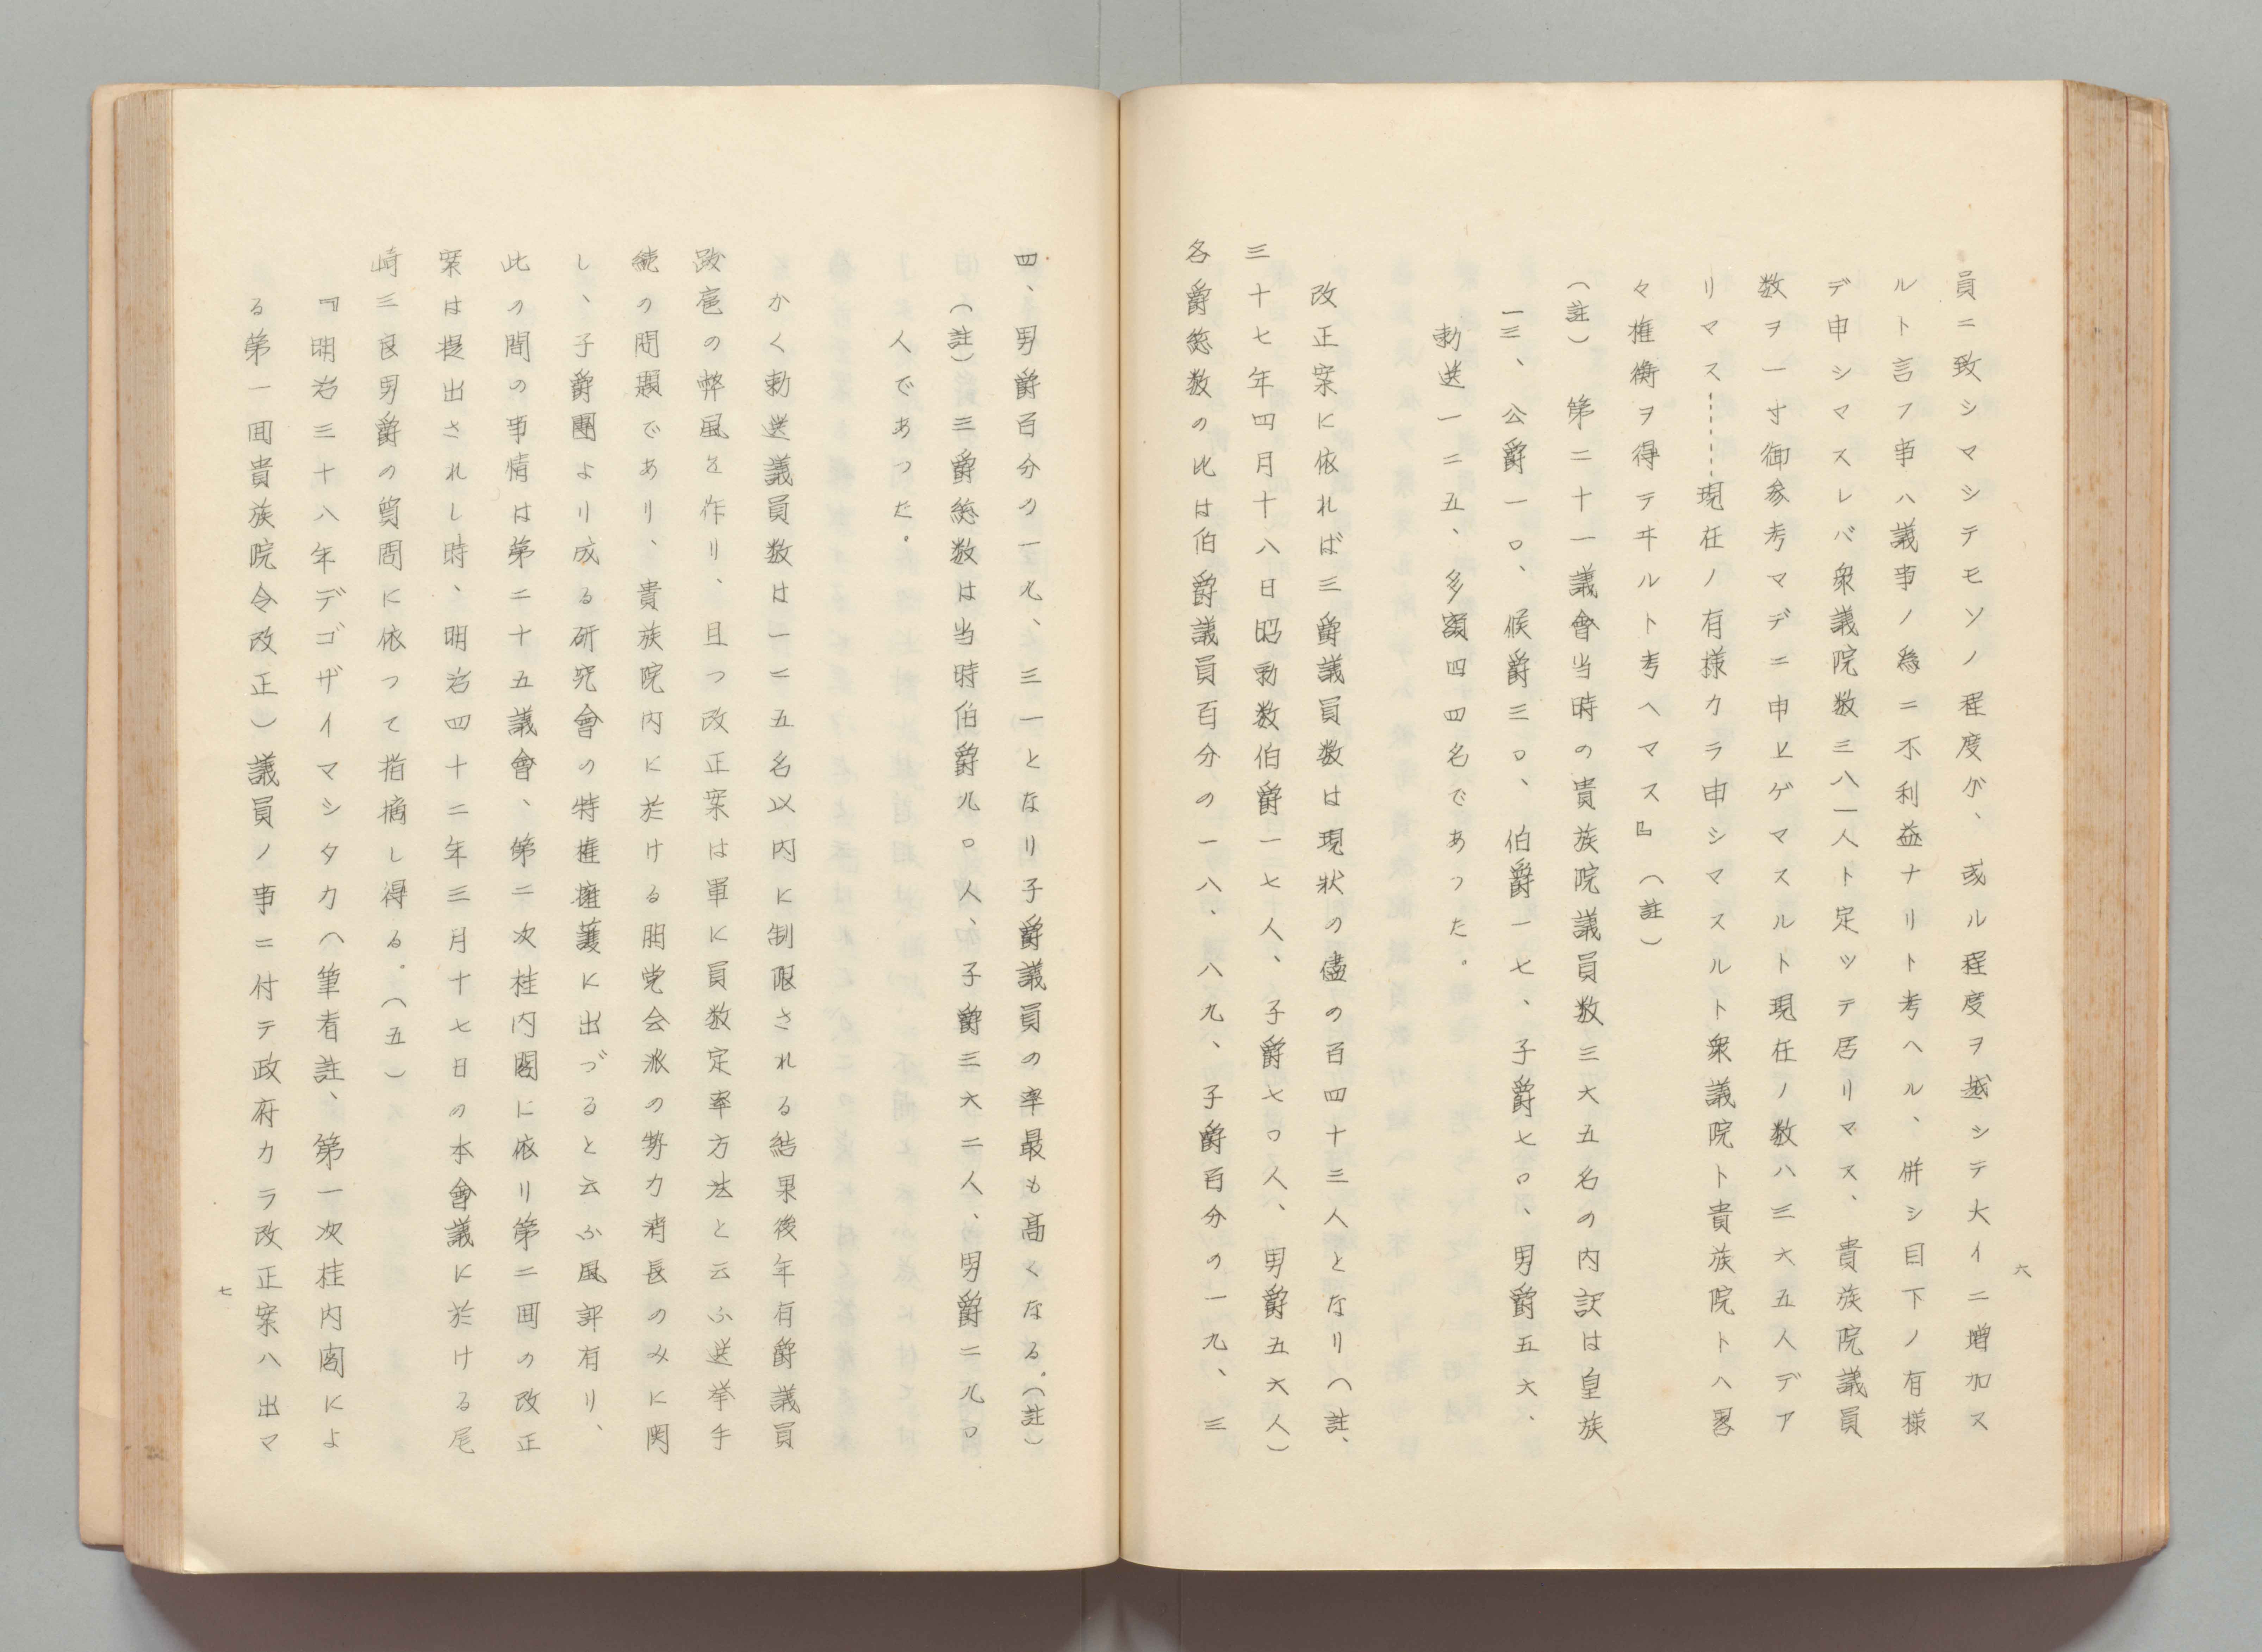 員ニ致シマシテモソノ程度ガ、或ル程度ヲ越シテ大イニ増加ス
ルト言フ事ハ議事ノ為ニ不利益ナリト考ヘル、併シ目下ノ有様
デ申シマスレバ衆議院数三八一人ト定ツテ居リマス、貴族院議員
数ヲ一寸御参考マデニ申上ゲマスルト現在ノ数ハ三六五人デア
リマス………現在ノ有様カラ申シマスルト衆議院ト貴族院トハ畧
々権衡ヲ得テヰルト考ヘマス』(註)
(註) 第二十一議會当時の貴族院議員数三六五名の内訳は皇族
一三、公爵一〇、候爵三〇、伯爵一七、子爵七〇、男爵五六、
勅送一二五、多額四四名であつた。
改正案に依れば三爵議員数は現狀の儘の百四十三人となり(註、
三十七年四月十八日昭勅数伯爵一七人、子爵七〇人、男爵五六人)
各爵総数の比は伯爵議員百分の一八、八九、子爵百分の一九、三
六
四、男爵百分の一九、三一となり子爵議員の率最も高くなる。(註)
(註)三爵総数は当時伯爵九〇人、子爵三六二人、男爵二九〇
人であつた。
かく勅送議員数は一二五名以内に制限される結果後年有爵議員
跋扈の弊風を作り、且つ改正案は軍に員数定率方法と云ふ送挙手
続の問題であり、貴族院内に於ける朋党会派の勢力消長のみに関
し、子爵團より成る研究會の特権擁護に出づると云ふ風評有り、
此の間の事情は第二十五議會、第二次桂内閣に依り第二回の改正
案は提出されし時、明治四十二年三月十七日の本會議に於ける尾
崎三良男爵の質問に依つて指摘し得る。(五)
『明治三十八年デゴザイマシタカ(筆者註、第一次桂内閣によ
る第一回貴族院令改正)議員ノ事ニ付テ政府カラ改正案ハ出マ
七